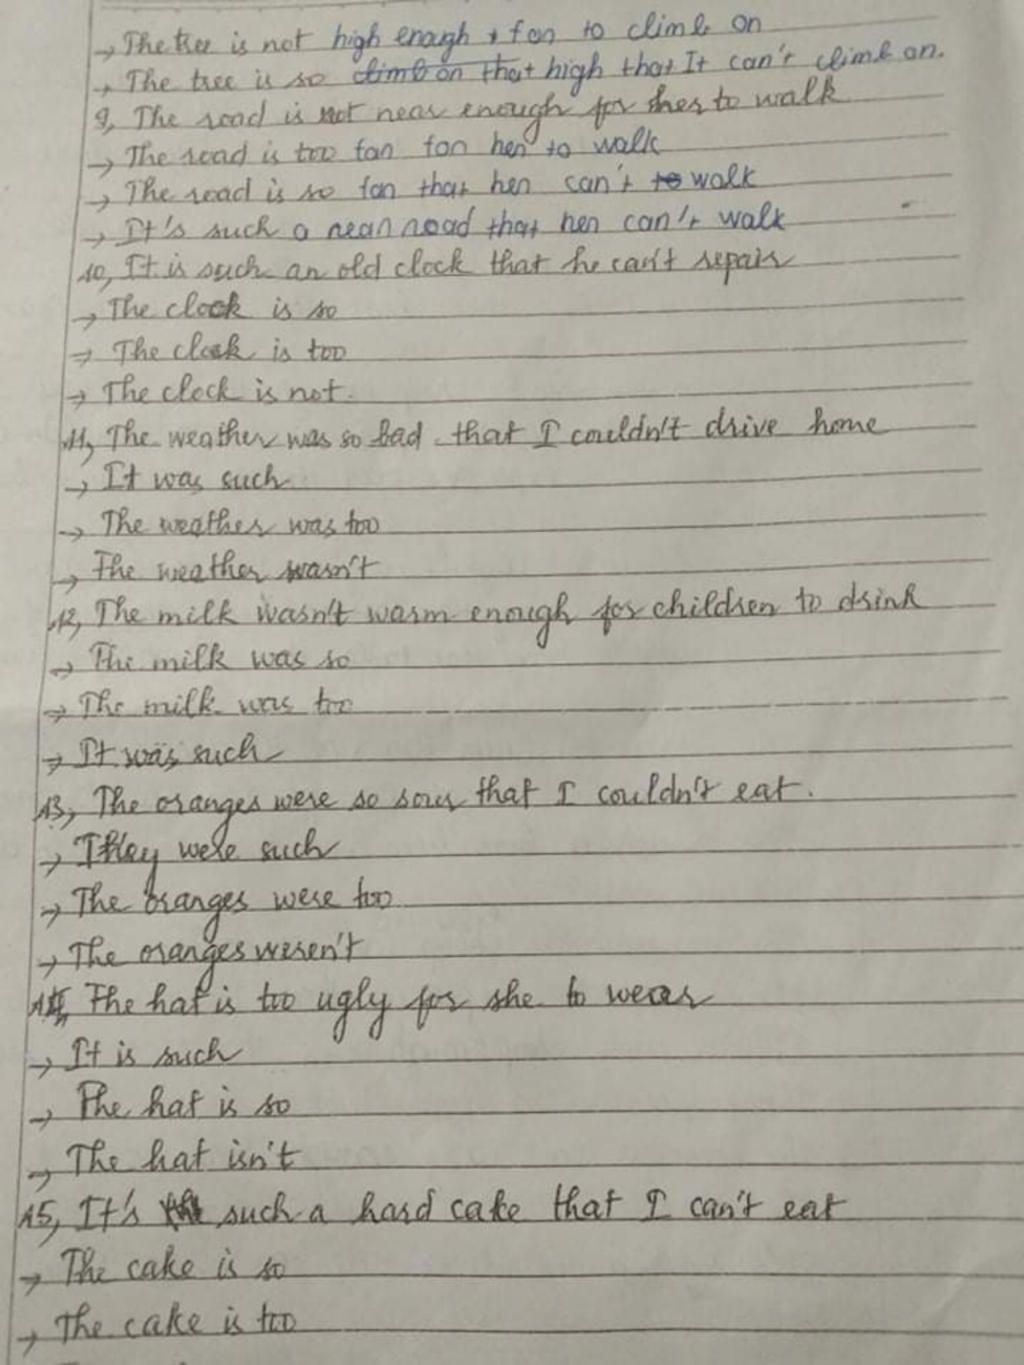 → The tree is not high enough for to climb on
→ The tree is so climb on that high that It can't climb on.
9, The road is not near enough for her to walk
→ The road is too far for her to walk
→ The road is so far that her can't to walk
→ It's such a near road that her can't walk
10, It is such an old clock that he can't repair
→ The clock is so
→ The clock is too
→ The clock is not.
11, The weather was so bad that I couldn't drive home
→ It was such
→ The weather was too
→ The weather wasn't
12, The milk wasn't warm enough for children to drink
→ The milk was so
→ The milk was too
→ It was such
13, The oranges were so sour that I couldn't eat.
→ They were such
→ The oranges were too
→ The oranges weren't
14, The hat is too ugly for she to wear
→ It is such
→ The hat is so
→ The hat isn't
15, It's such a hard cake that I can't eat
→ The cake is so
→ The cake is too